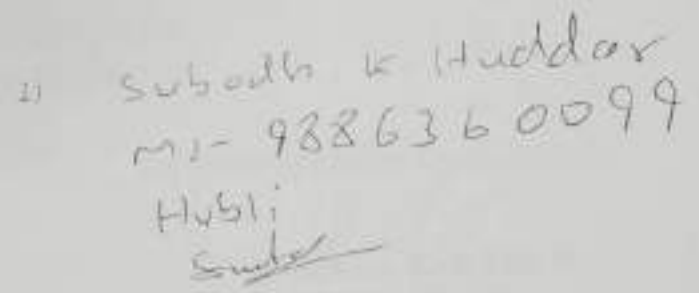 2) Subodh K Huddar
M:- 9886360099
Hubli